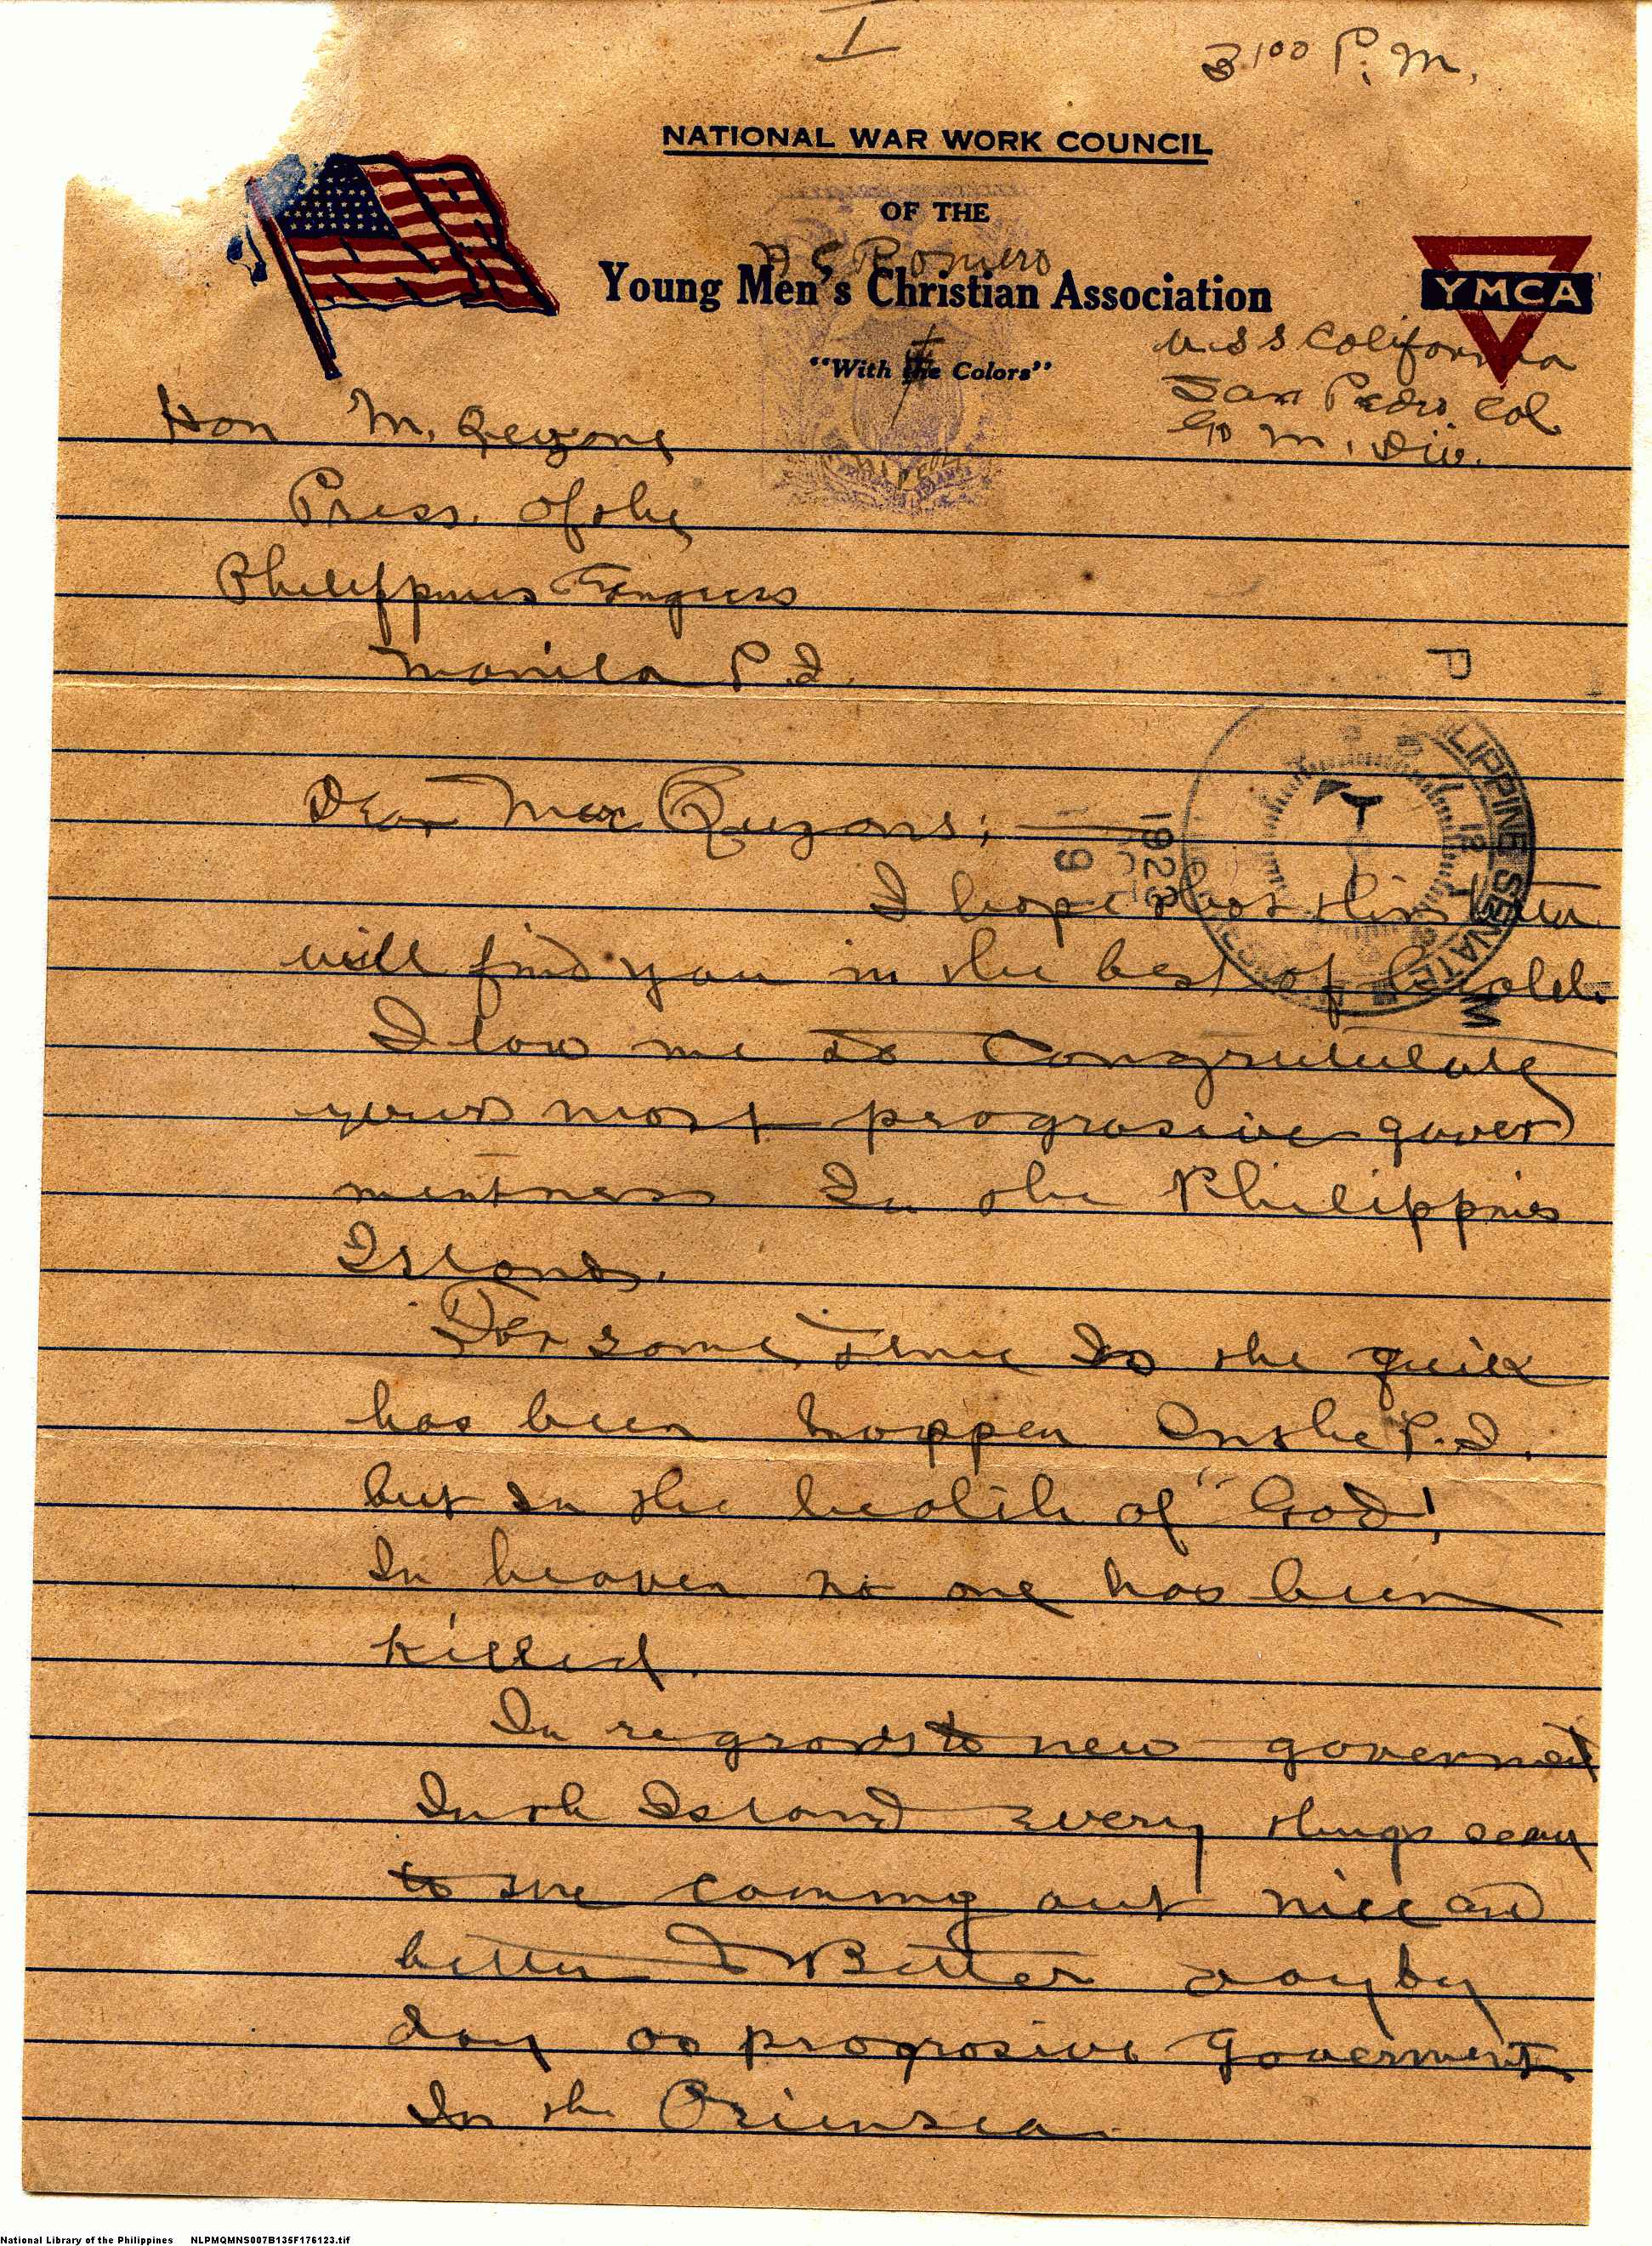 I
3:00 P.M.
NATIONAL WAR WORK COUNCIL
OF THE
A S Romero
Young Men's Christian Association
YMCA
"With the Colors"
U.S.S California
San Pedro Cal
M. Div.
Hon M. Qeyons
Press. of the
Philippines Congress
Manila P.I.
Dear Mr Quyons;
PHILIPPINE SENATE
1923
OCT
I hope that this letter
will find you in the best of health.
I low me to Congratulate
yours most progrosive gover
mentness In the Philippines
Islands.
For some time As the quick
has been hoppen In the P.I.
but In the health of "God!
In heaven no one has been
killed.
In regrards to new government
In th Island Every things seem
to me comming out nice and
better & Better day by
day as progrosive Goverment
In the Oriensea.
National Library of the Philippines NLPMQMNS007B135F176123.tif